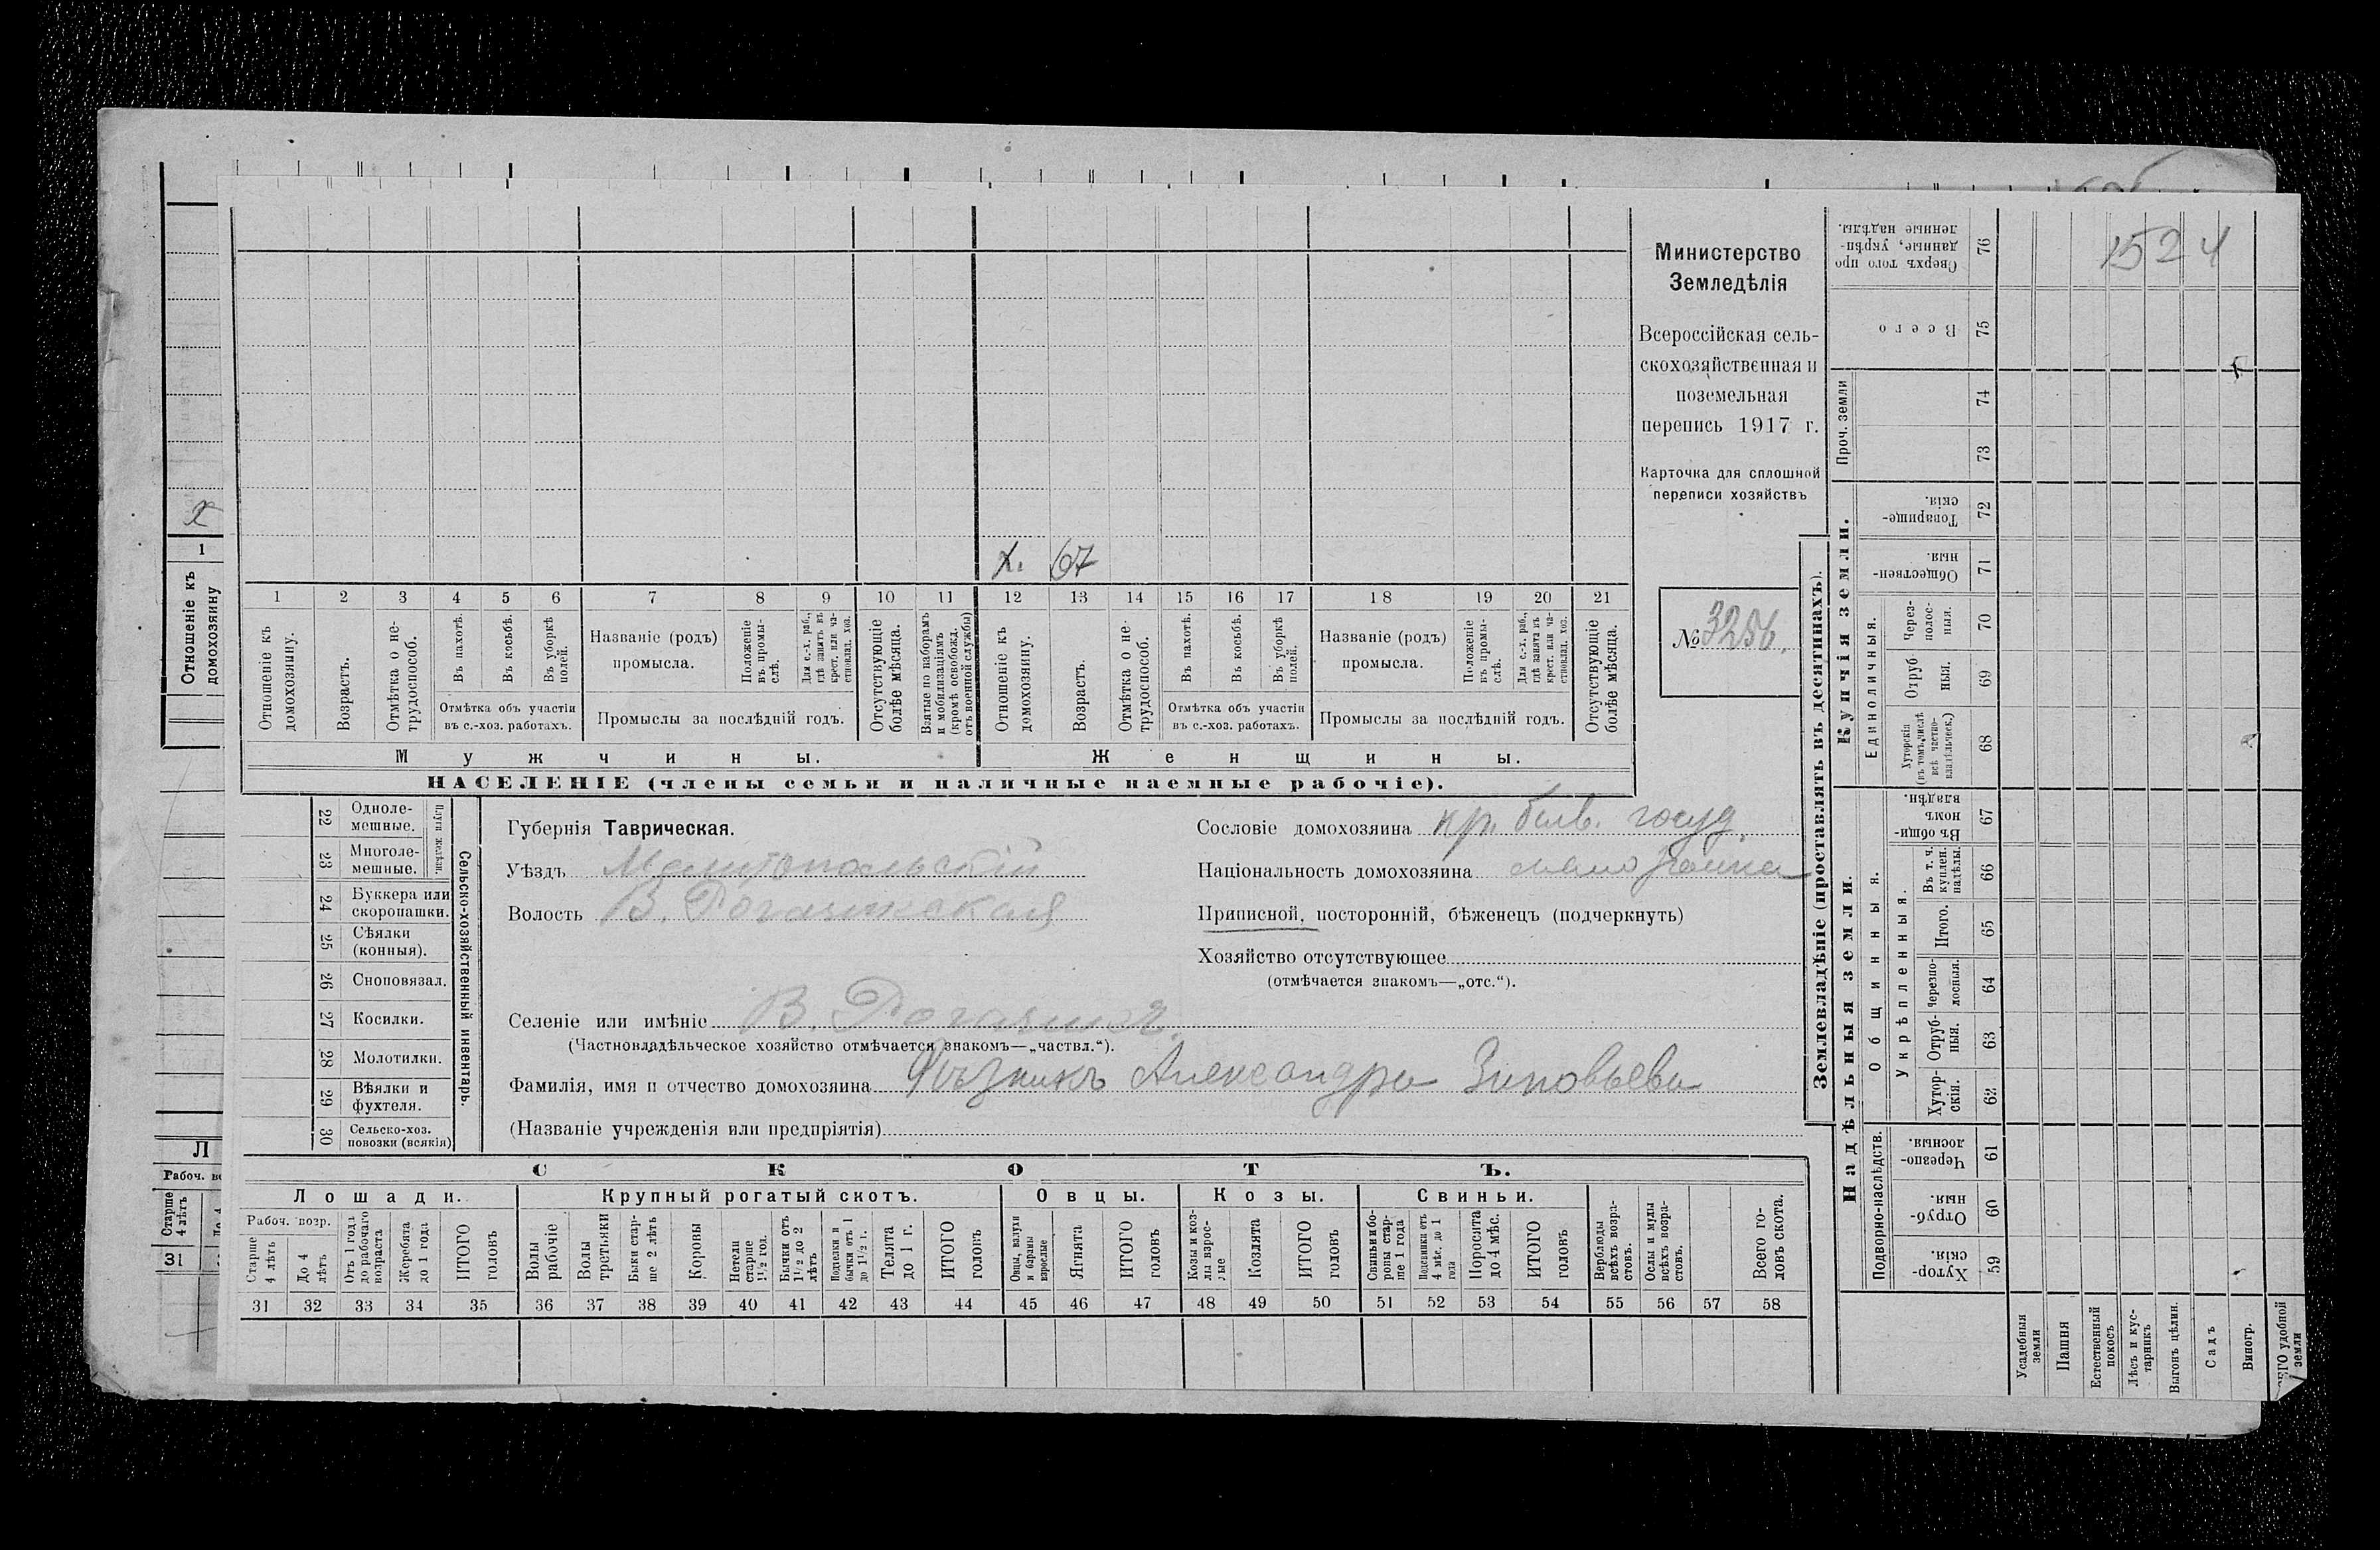 Министерство
Земледѣлія
Всероссійская сель-
скохозяйственная и
поземельная
перепись 1917 г.
Карточка для сплошной
переписи хозяйствъ
№ 3256.
1524
х. 67
1 2 3 4 5 6 7 8 9 10 11 12 13 14 15 16 17 18 19 20 21
Отношеніе къ домохозяину.
Возрастъ.
Отмѣтка о не-трудоспособ.
Въ пахотѣ.
Въ косьбѣ.
Въ уборкѣ полей.
Отмѣтка объ участіи
въ с.-хоз. работахъ.
Названіе (родъ)
промысла.
Положеніе въ промы-слѣ.
Для с.-х. раб., гдѣ занятъ въ крест. или ча-стновлад. хоз.
Промыслы за послѣдній годъ.
Отсутствующіе болѣе мѣсяца.
Взятые по наборамъ и мобилизаціямъ (кромѣ освобожд. отъ военной службы)
Отношеніе къ домохозяину.
Возрастъ.
Отмѣтка о не-трудоспособ.
Въ пахотѣ.
Въ косьбѣ.
Въ уборкѣ полей.
Отмѣтка объ участіи
въ с.-хоз. работахъ.
Названіе (родъ)
промысла.
Положеніе въ промы-слѣ.
Для с.-х. раб., гдѣ занята въ крест. или ча-стновлад. хоз.
Промыслы за послѣдній годъ.
Отсутствующіе болѣе мѣсяца.
Мужчины.
Женщины.
НАСЕЛЕНІЕ (члены семьи и наличные наемные рабочіе).
Сельско-хозяйственный инвентарь.
Плуги желѣзн.
22 Одноле-мешные.
23 Многоле-мешные.
24 Буккера или скоропашки.
25 Сѣялки (конныя).
26 Сноповязал.
27 Косилки.
28 Молотилки.
29 Вѣялки и фухтеля.
30 Сельско-хоз. повозки (всякія)
Губернія Таврическая.
Уѣздъ Мелитопольскій
Волость В. Рогачикская
Селеніе или имѣніе В. Рогачикъ
(Частновладѣльческое хозяйство отмѣчается знакомъ—„частвл.“).
Фамилія, имя и отчество домохозяина Рѣзникъ Александра Зиновьева
(Названіе учрежденія или предпріятія)
Сословіе домохозяина кр. бывв. госуд.
Національность домохозяина
Приписной, посторонній, бѣженецъ (подчеркнуть)
Хозяйство отсутствующее
(отмѣчается знакомъ—„отс.“).
СКОТЪ.
Лошади.
Крупный рогатый скотъ.
Овцы.
Козы.
Свиньи.
Рабоч. возр.
Старше 4 лѣтъ
До 4 лѣтъ
Отъ 1 года до рабочаго возраста
Жеребята до 1 года
ИТОГО головъ
Волы рабочіе
Волы третьяки
Быки стар-ше 2 лѣтъ
Коровы
Нетели старше 1½ год.
Бычки отъ 1½ до 2 лѣтъ
Подтелки и бычки отъ 1 до 1½ г.
Телята до 1 г.
ИТОГО головъ
Овцы, валухи и бараны взрослые
Ягнята
ИТОГО головъ
Козы и коз-лы взрос-лые
Козлята
ИТОГО головъ
Свиньи и бо-ровы стар-ше 1 года
Подсвинки отъ 4 мѣс. до 1 года
Поросята до 4 мѣс.
ИТОГО головъ
Верблюды всѣхъ возра-стовъ.
Ослы и мулы всѣхъ возра-стовъ.
Всего го-ловъ скота.
31 32 33 34 35 36 37 38 39 40 41 42 43 44 45 46 47 48 49 50 51 52 53 54 55 56 57 58
Землевладѣніе (проставлять въ десятинахъ).
Надѣльныя земли.
Купчія земли.
Проч. земли
Подворно-наслѣдств.
Общинныя.
Укрѣпленныя.
Единоличныя.
59 Хутор-скія.
60 Отруб-ныя.
61 Черезпо-лосныя.
62 Хутор-скія.
63 Отруб-ныя.
64 Черезпо-лосныя.
65 Итого.
66 Въ т. ч. куплен. надѣлы.
67 Въ общин-номъ владѣн.
68 Хуторскія (въ томъ числѣ всѣ частно-владѣльческ.)
69 Отруб-ныя.
70 Через-полос-ныя.
71 Обществен-ныя.
72 Товарище-скія.
73
74
75 Всего
76 Сверхъ того про-данные, укрѣп-ленные надѣлы.
Усадебныя земли
Пашня
Естественный покосъ
Лѣсъ и кус-тарникъ
Выгонъ цѣлин.
Садъ
Виногр.
удобной земли
х
1
Отношеніе къ домохозяину
Л
Рабоч.
Старше 4 лѣтъ
31